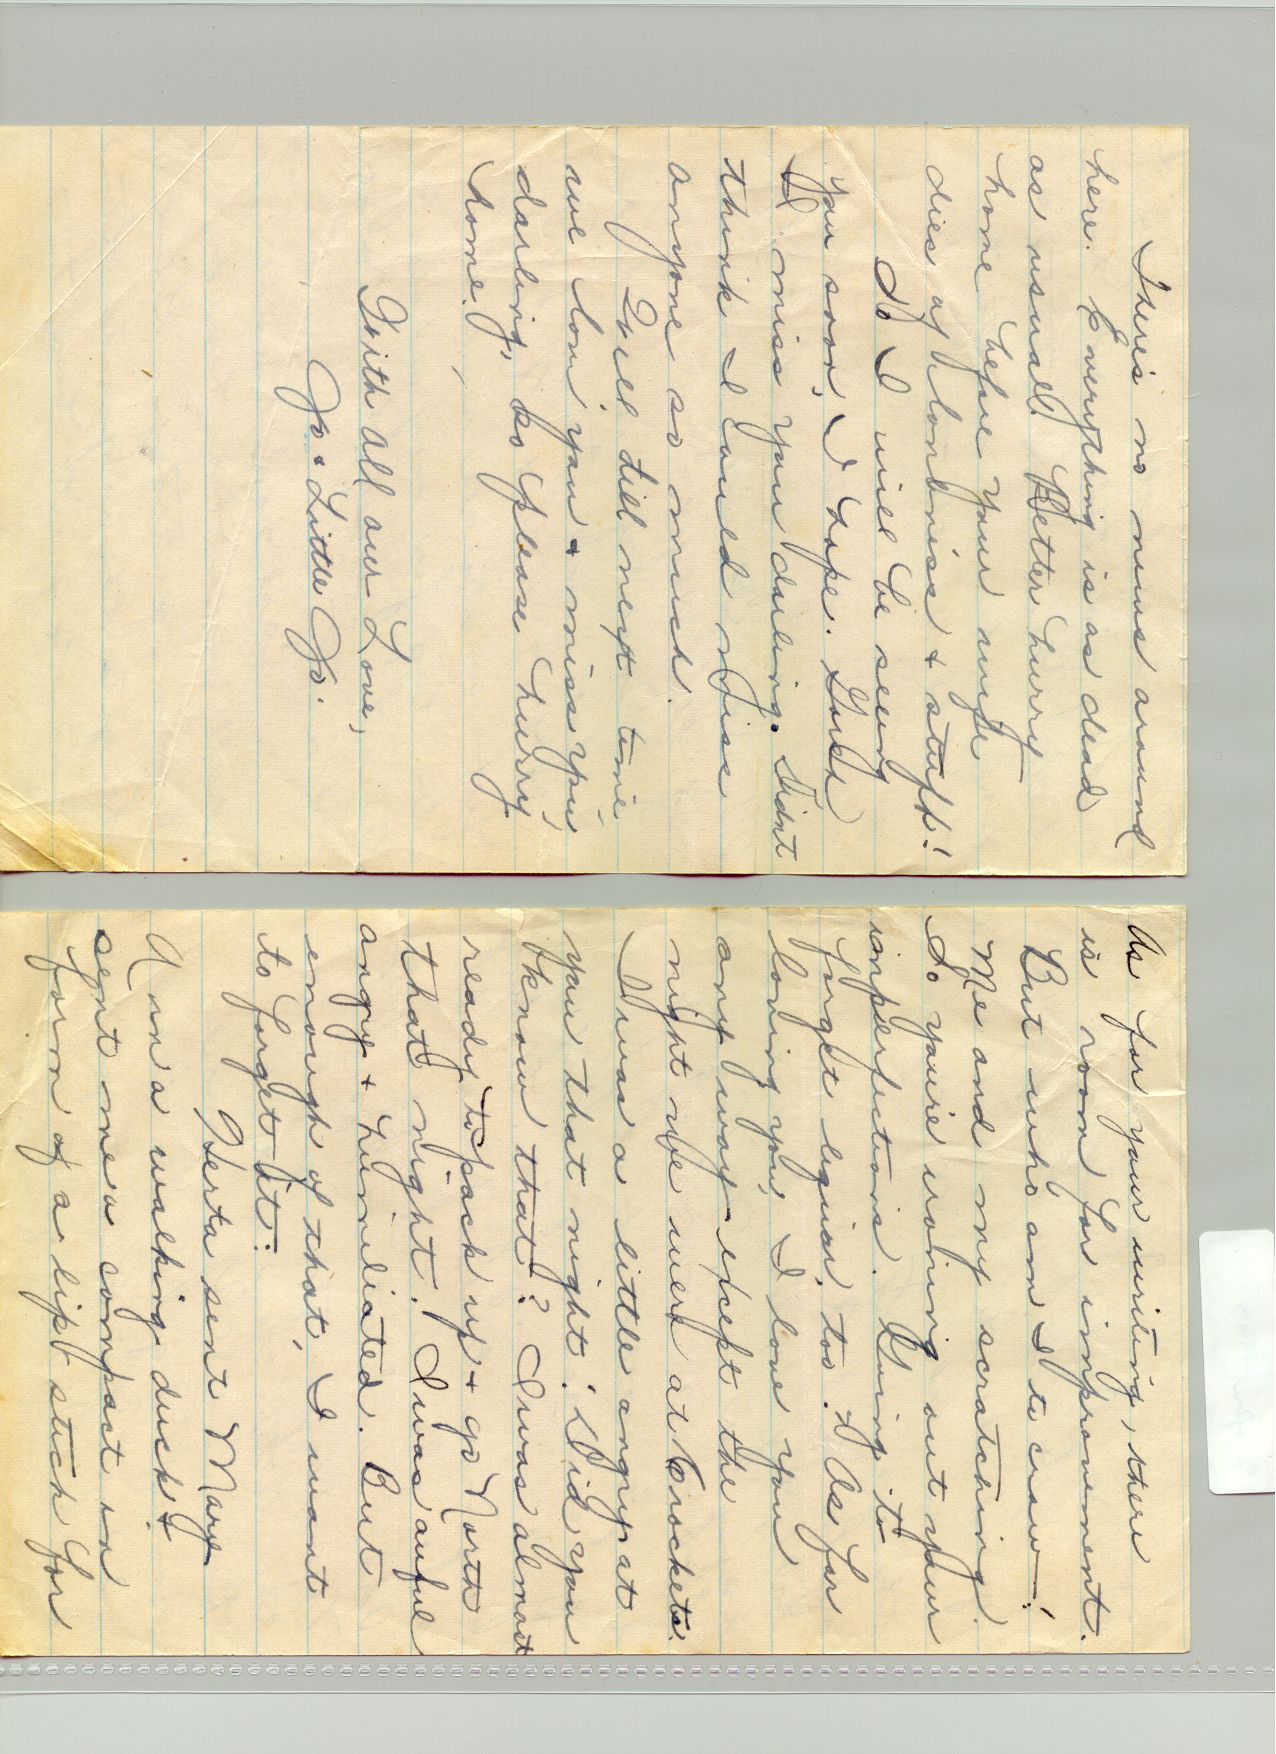 There's no news around
here. Everything is as dead
as usual. Better hurry
home before your wife
dies of lonliness + stuff!
So I will be seeing
you soon, I hope. Gosh
I miss you darling. Didnt
think I could miss
anyone so much.
Well till next time,
we love you + miss you
darling, so please hurry
home.
With all our Love,
Jo + Little Jo.
As for your writing, there
is room for improvement.
But who am I to crow—!
Me and my scratching.
So you're ironing out your
imperfections. Going to
forget liquor, too. As for
loving you, I love you
any way - except the
night we were at Crocketts.
I was a little angry at
you that night. Did you
know that? I was almost
ready to pack up + go North
that night. I was awful
angry + humiliated. But
enough of that, I want
to forget it.
Gerta sent Mary
Ann a walking duck &
sent me a compact in
form of a lip stick for